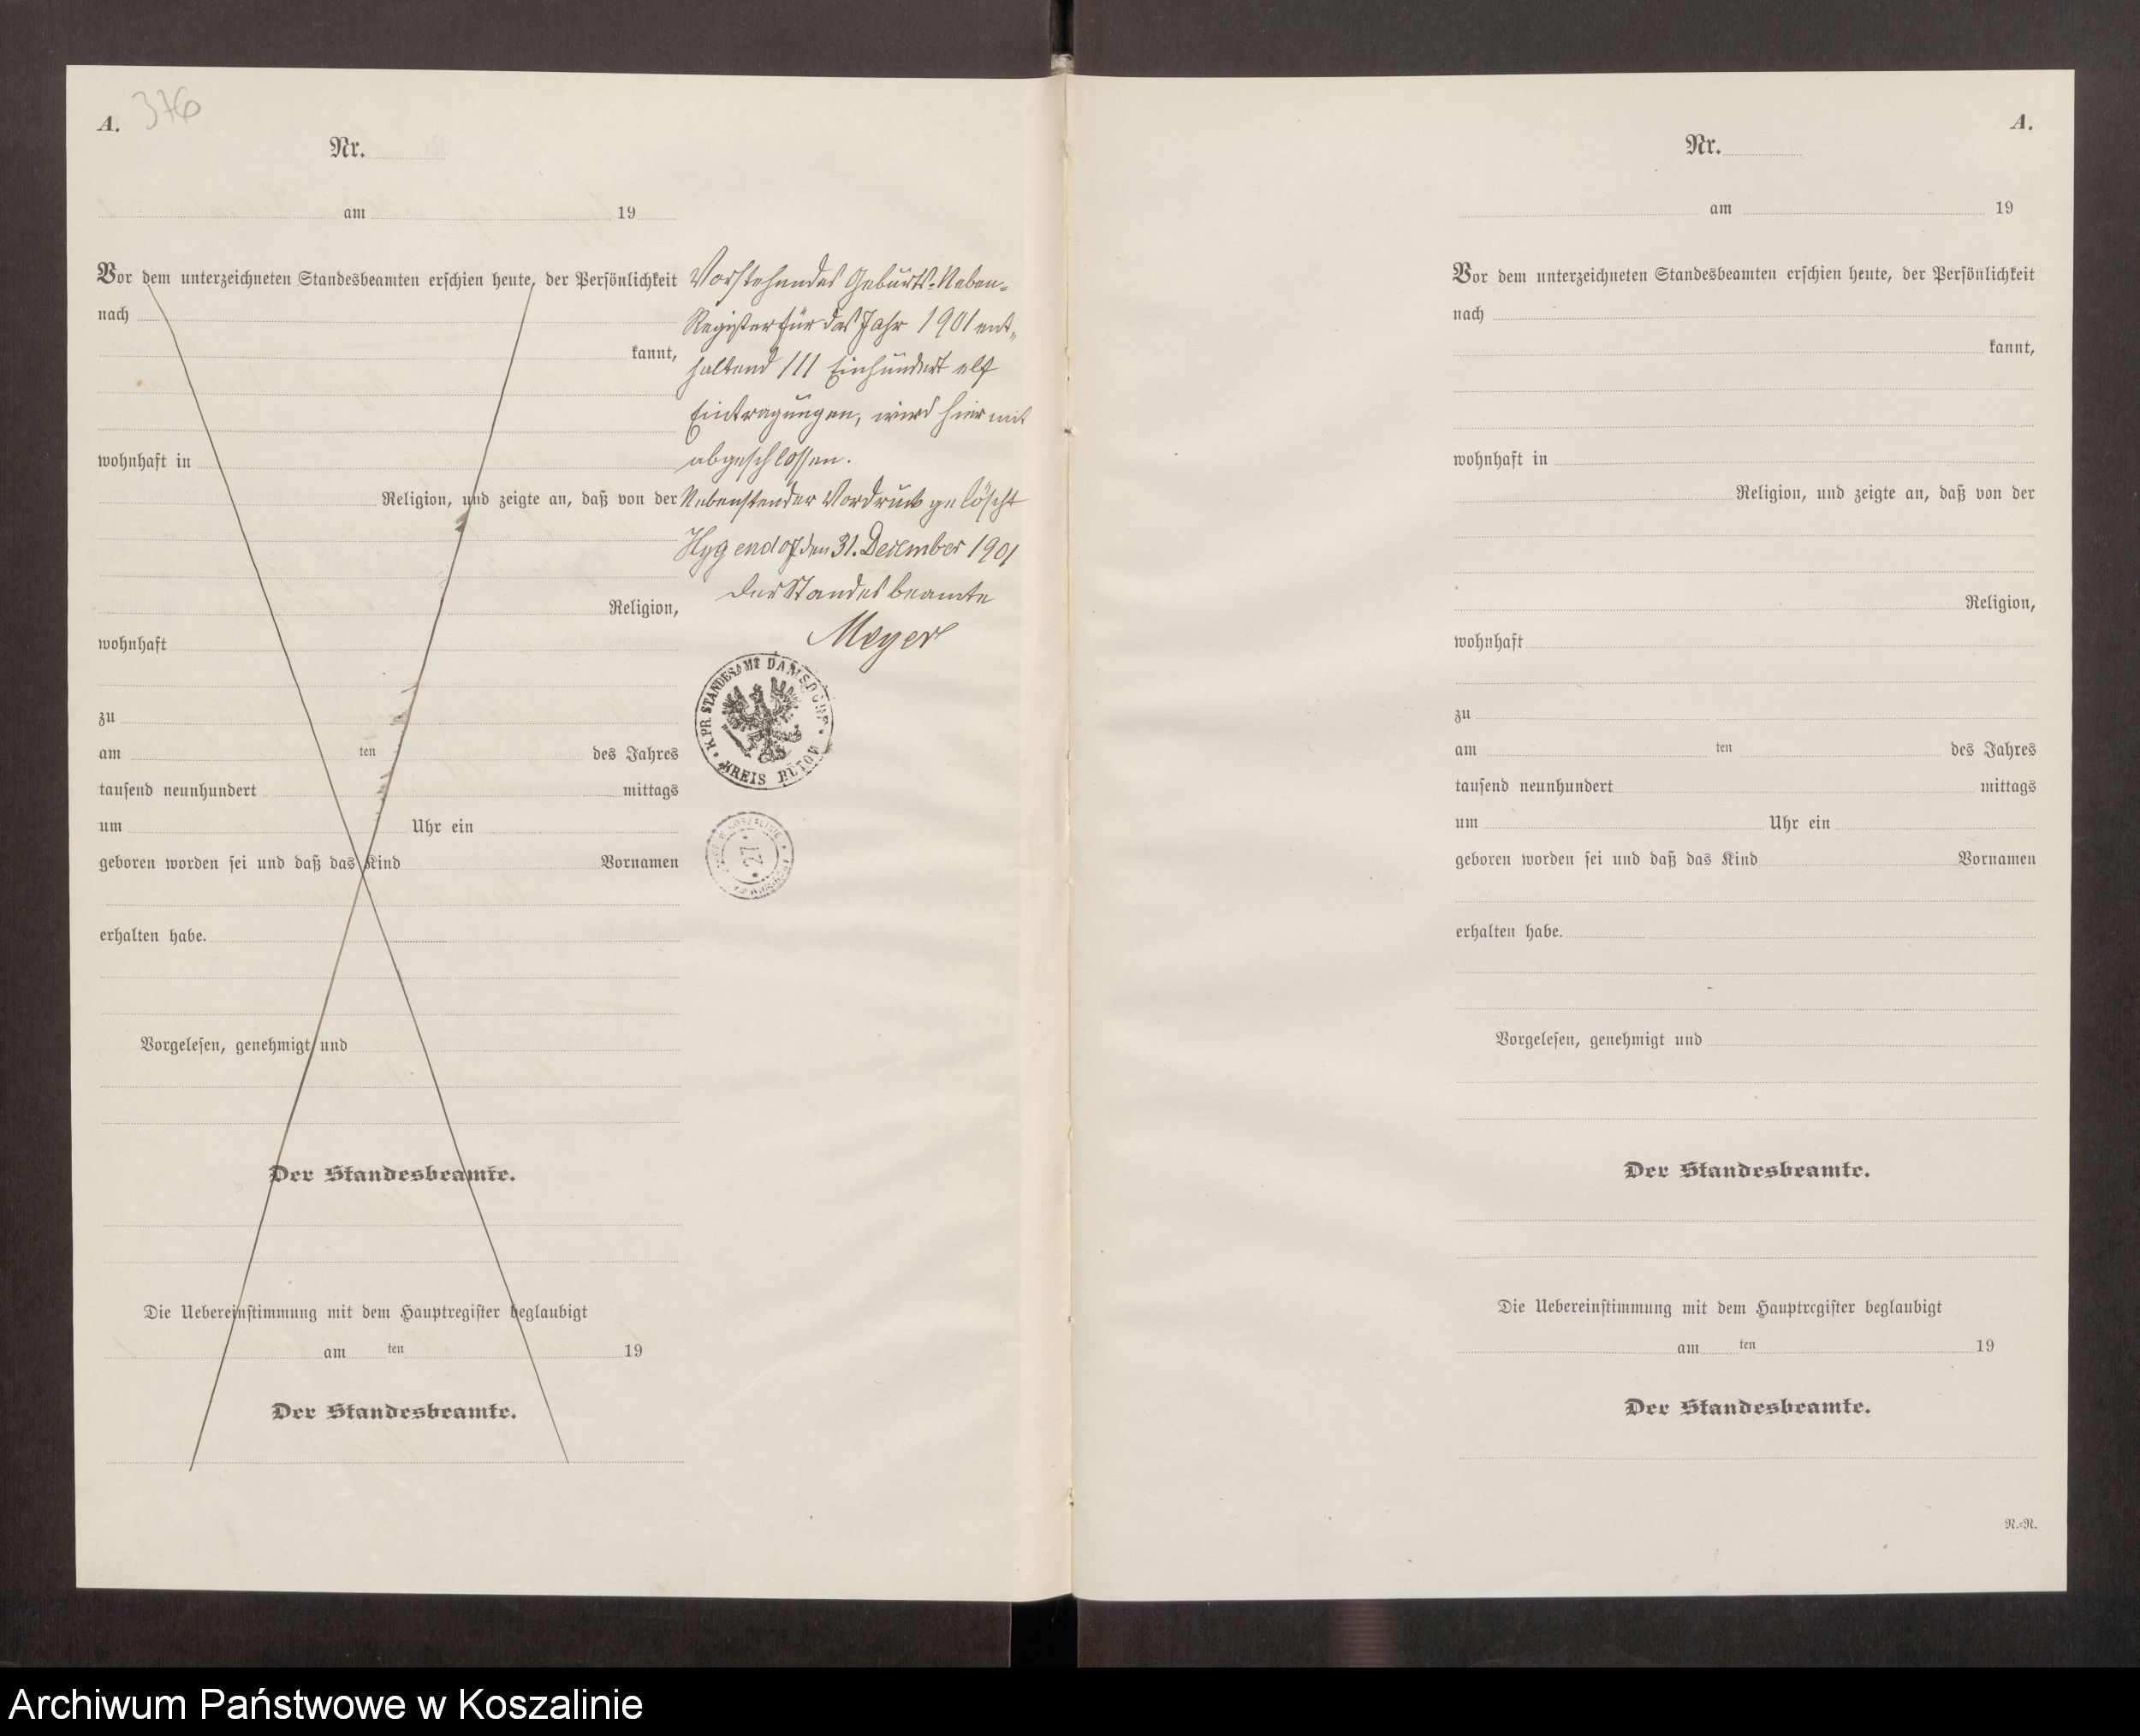 A. 376
Nr.
am 19
Vor dem unterzeichneten Standesbeamten erschien heute, der Persönlichkeit
nach
kannt,
wohnhaft in
Religion, und zeigte an, daß von der
Religion,
wohnhaft
zu
am ten des Jahres
tausend neunhundert mittags
um Uhr ein
geboren worden sei und daß das Kind Vornamen
erhalten habe.
Vorgelesen, genehmigt und
Der Standesbeamte.
Die Uebereinstimmung mit dem Hauptregister beglaubigt
am ten 19
Der Standesbeamte.
Vorstehendes Geburts-Neben-
Register für das Jahr 1901 ent-
haltend 111 Einhundert elf
Eintragungen, wird hiermit
abgeschlossen.
Nebenstender Vordruck gelöscht
den 31. Dezember 1901
Der Standesbeamte
Meyer
K. PR. STANDESAMT DAMSDORF
KREIS BÜTOW
A.
Nr.
am 19
Vor dem unterzeichneten Standesbeamten erschien heute, der Persönlichkeit
nach
kannt,
wohnhaft in
Religion, und zeigte an, daß von der
Religion,
wohnhaft
zu
am ten des Jahres
tausend neunhundert mittags
um Uhr ein
geboren worden sei und daß das Kind Vornamen
erhalten habe.
Vorgelesen, genehmigt und
Der Standesbeamte.
Die Uebereinstimmung mit dem Hauptregister beglaubigt
am ten 19
Der Standesbeamte.
N.-R.
Archiwum Państwowe w Koszalinie